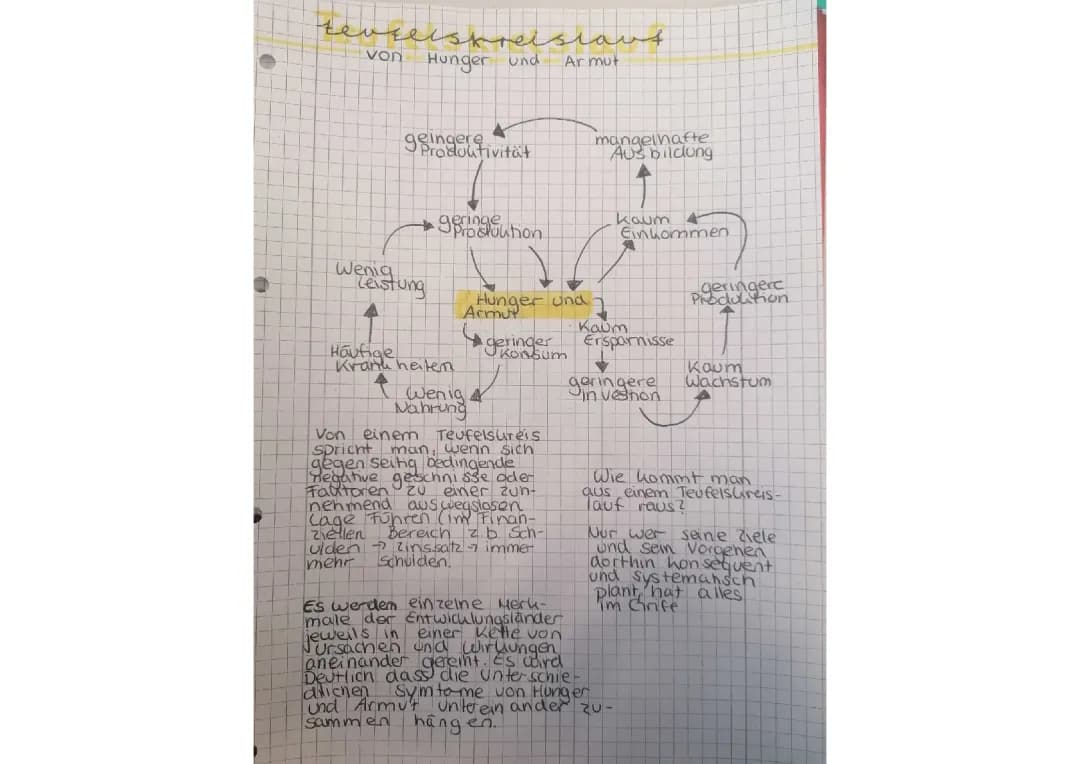 Teufelskreislauf
von Hunger und Armut
geingere
Produktivität
mangelhafte
Ausbildung
geringe
Produktion
kaum
Einkommen
Wenig
Leistung
geringere
Produktion
Hunger und
Armut
Kaum
Ersparnisse
geringer
Konsum
Häufige
Krankheiten
geringere
investion
Kaum
Wachstum
Wenig
Nahrung
Von einem Teufelskreis
spricht man, wenn sich
gegenseitig bedingende
negative geschnisse oder
Faktoren zu einer zun-
nehmend ausweglosen
Lage führen (im Finan-
ziellen Bereich z.b. Sch-
ulden → Zinssatz → immer
mehr Schulden.
Es werden einzelne Merk-
male der Entwicklungsländer
jeweils in einer Kette von
Ursachen und Wirkungen
aneinander gereiht. Es wird
Deutlich dass die unterschie-
dlichen Symtome von Hunger
und Armut untereinander zu-
sammen hängen.
Wie kommt man
aus einem Teufelskreis-
lauf raus?
Nur wer seine Ziele
und sein Vorgehen
dorthin konsequent
und systematisch
plant, hat alles
im Grife